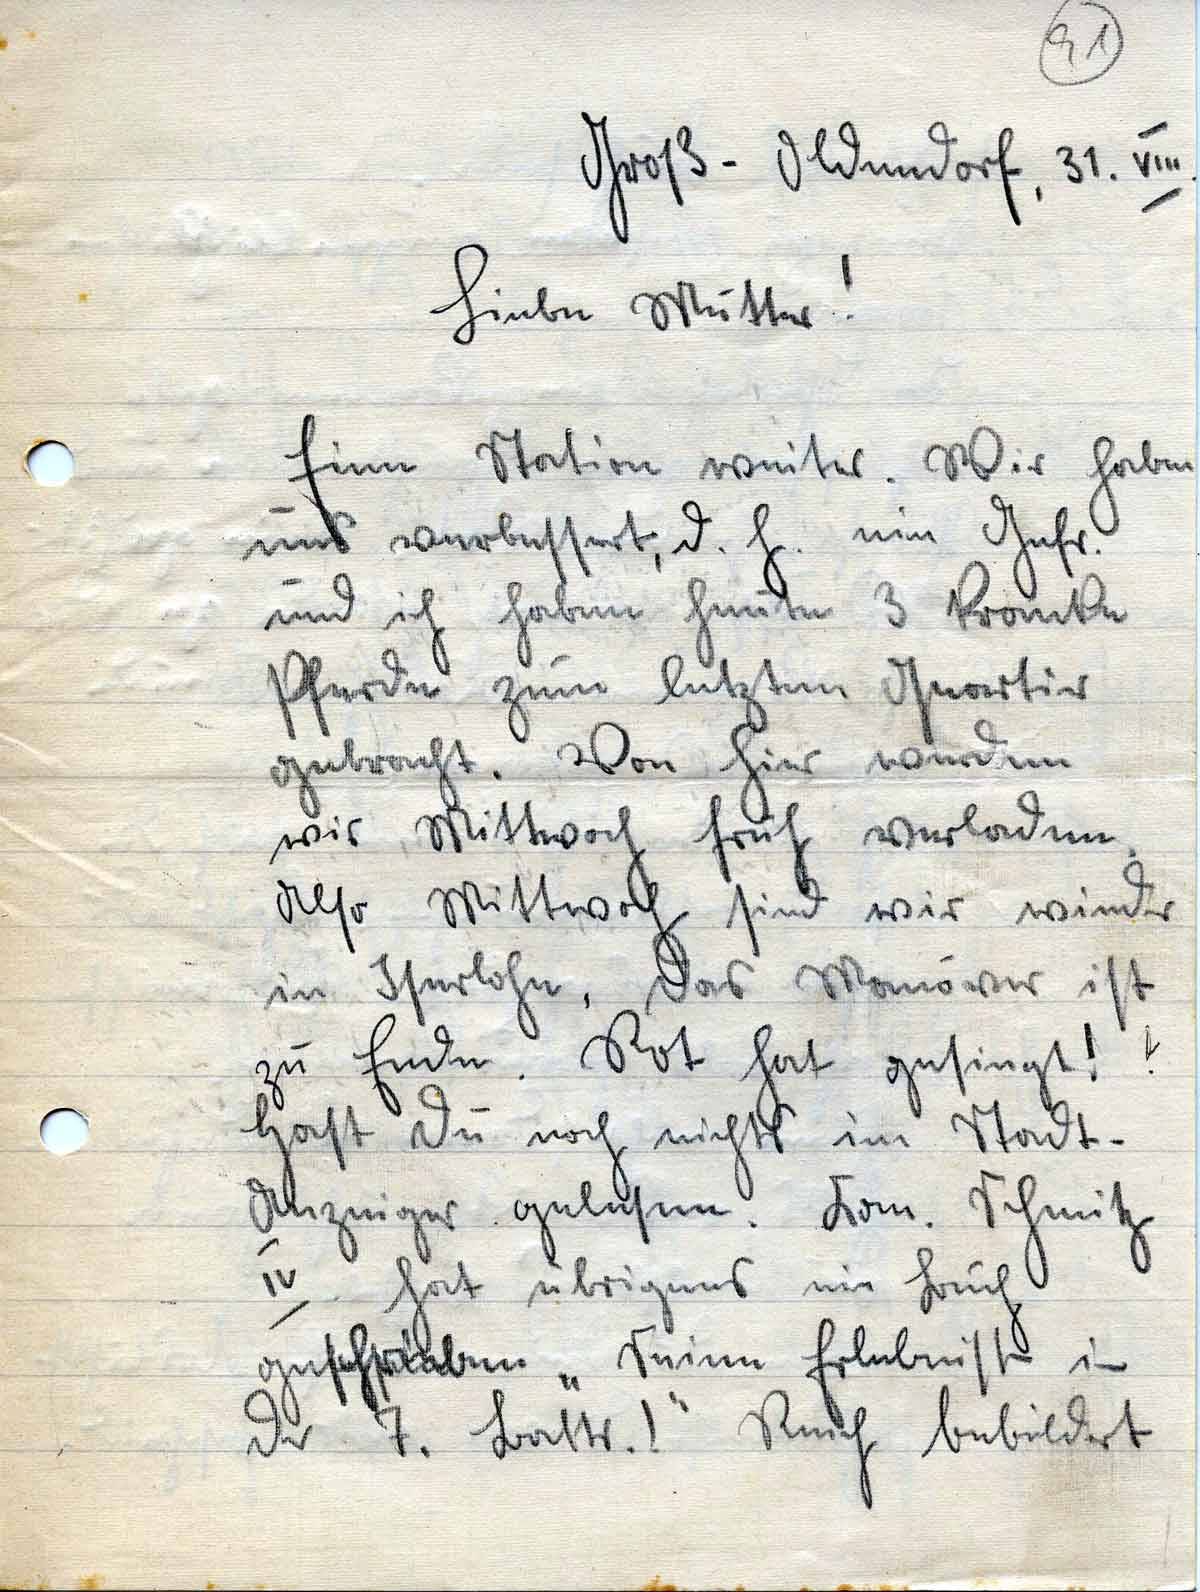 91
Groß-Oldendorf, 31. VIII.
Liebe Mutter!
Eine Station weiter. Wir haben
uns verbessert, d. h. ein Gefr.
und ich haben heute 3 kranke
Pferde zum letzten Quartier
gebracht. Von hier werden
wir Mittwoch früh verladen.
Also Mittwoch sind wir wieder
in Iserlohn, Das Manöver ist
zu Ende. Rot hat gesiegt!
Hast Du noch nichts im Stadt-
Anzeiger gelesen. Kan. Schmitz
IV hat übrigens ein Buch
geschrieben „Seine Erlebnisse in
der 7. Battr.!" Reich bebildert